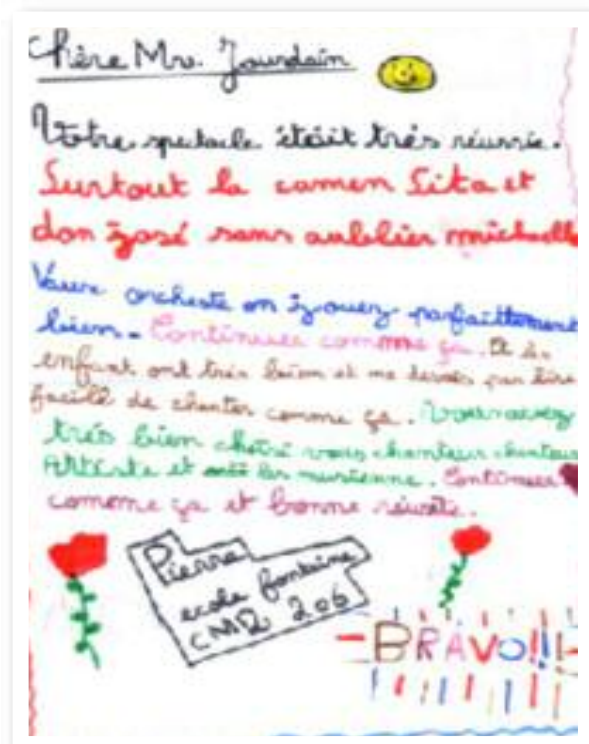 Chère Mr. Jourdain
Votre spectacle était très réussie.
Surtout la camen Sita et
don josé sans oublier michaelle
Vaux orcheste on jouez parfaittement
bien. Continuez comme ça. Et
enfant ont très bien et me
facile de chanter comme ça. Vous avez
très bien vous chanteur chanteus
Artiste et les musienne. Continuez
comme ça et bonne réusite.
Pierre
ecole fontaine
CM2 206
BRAVO!!!